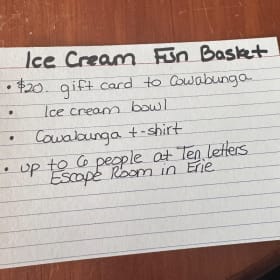 Ice Cream Fun Basket
• $20. gift card to Cowabunga
• Ice cream bowl
• Cowabunga t-shirt
• up to 6 people at Ten Letters
Escape Room in Erie